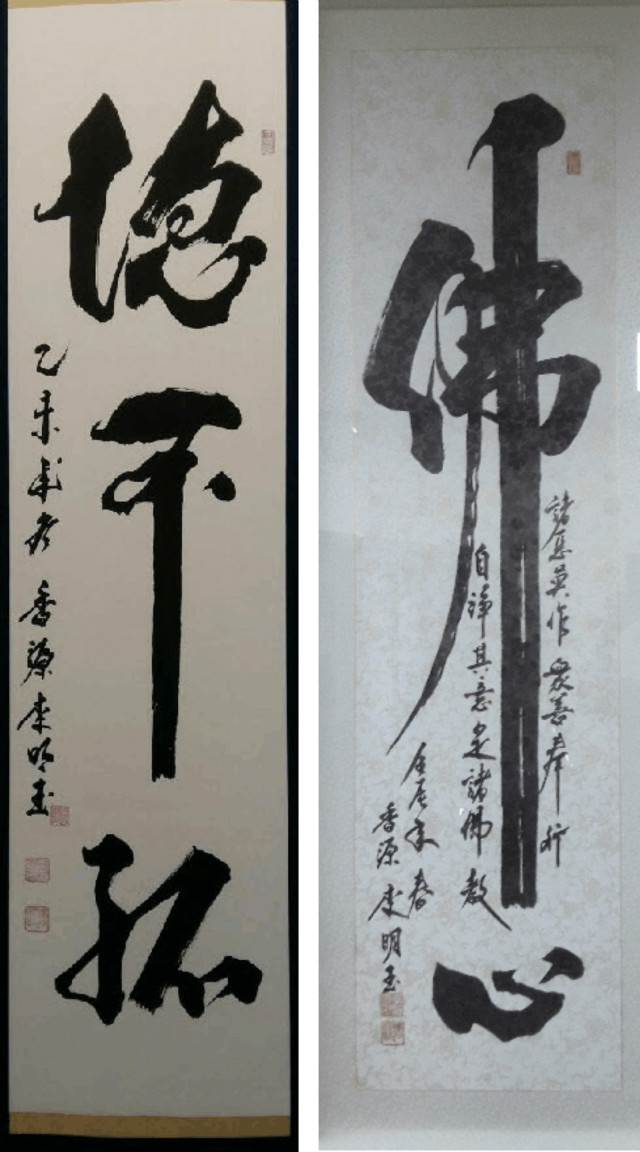 德不孤
乙未 香源 李明玉
佛心
諸惡莫作 衆善奉行
自淨其意 是諸佛敎
壬辰年春
香源 李明玉